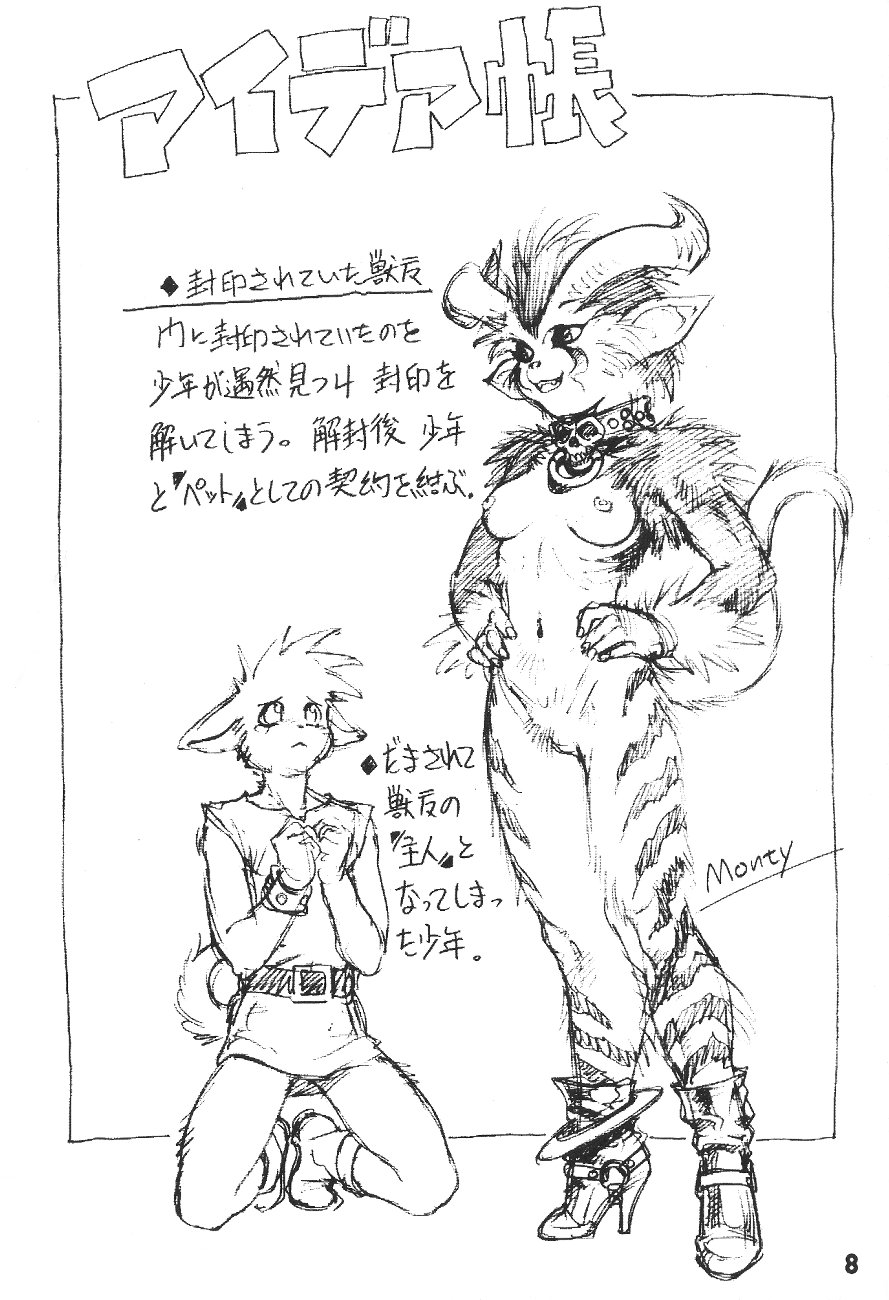 アイデア帳
◆封印されていた獣女
内に封印されていたのを
少年が偶然見つけ 封印を
解いてしまう。解封後 少年
と『ペット』としての契約を結ぶ。
◆だまされて
獣女の
『主人』と
なってしまっ
た少年。
Monty
8